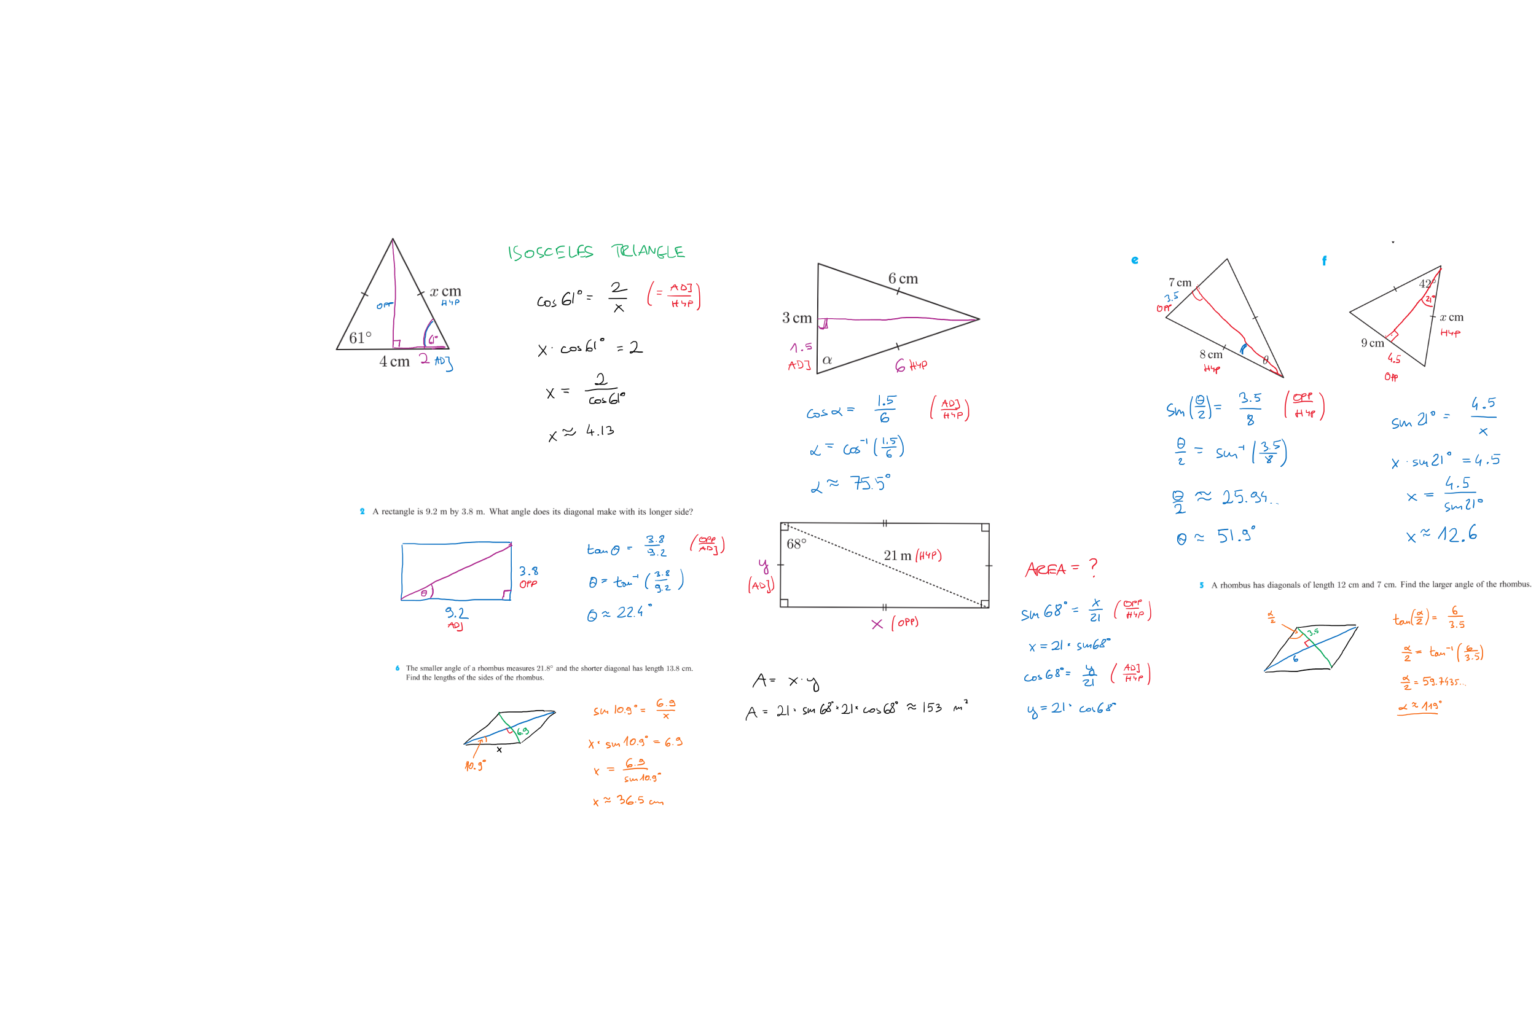 ISOSCELES TRIANGLE
x cm
HYP
OPP
61°
4 cm 2 ADJ
cos 61° = 2/x (= ADJ/HYP)
x · cos 61° = 2
x = 2/cos 61°
x ≈ 4.13
6 cm
3 cm
1.5
ADJ
α
6 HYP
cos α = 1.5/6 (ADJ/HYP)
α = cos⁻¹(1.5/6)
α ≈ 75.5°
e
7 cm
3.5
OPP
8 cm
HYP
θ
sin(θ/2) = 3.5/8 (OPP/HYP)
θ/2 = sin⁻¹(3.5/8)
θ/2 ≈ 25.94..
θ ≈ 51.9°
f
42°
21°
x cm
HYP
9 cm
4.5
OPP
sin 21° = 4.5/x
x · sin 21° = 4.5
x = 4.5/sin 21°
x ≈ 12.6
2 A rectangle is 9.2 m by 3.8 m. What angle does its diagonal make with its longer side?
3.8
OPP
θ
9.2
ADJ
tan θ = 3.8/9.2 (OPP/ADJ)
θ = tan⁻¹(3.8/9.2)
θ ≈ 22.4°
68°
21 m (HYP)
y
(ADJ)
x (OPP)
AREA = ?
sin 68° = x/21 (OPP/HYP)
x = 21 · sin 68°
cos 68° = y/21 (ADJ/HYP)
y = 21 · cos 68°
A = x · y
A = 21 · sin 68° · 21 · cos 68° ≈ 153 m²
5 A rhombus has diagonals of length 12 cm and 7 cm. Find the larger angle of the rhombus.
α/2
3.5
6
tan(α/2) = 6/3.5
α/2 = tan⁻¹(6/3.5)
α/2 = 59.7435..
α ≈ 119°
6 The smaller angle of a rhombus measures 21.8° and the shorter diagonal has length 13.8 cm.
Find the lengths of the sides of the rhombus.
6.9
x
10.9°
sin 10.9° = 6.9/x
x · sin 10.9° = 6.9
x = 6.9/sin 10.9°
x ≈ 36.5 cm